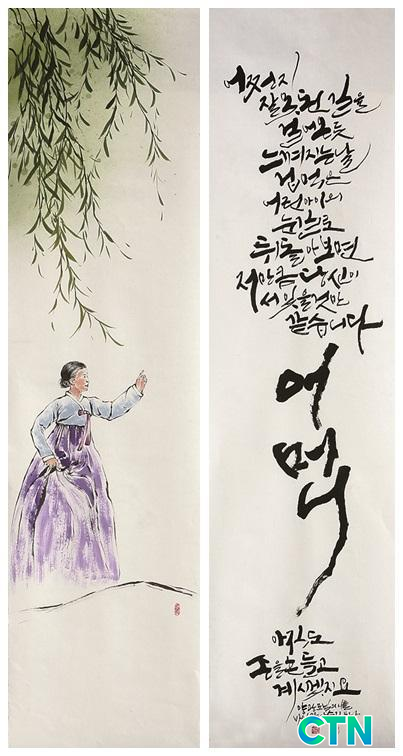 어쩐지
잘못 친 길을
걸어온 듯
느껴지는 날
겁먹은
어린아이의
눈빛으로
뒤돌아보면
저만큼 당신이
서 있을 것만
같습니다
어머니
아직도
손을 흔들고
계시겠지요
CTN